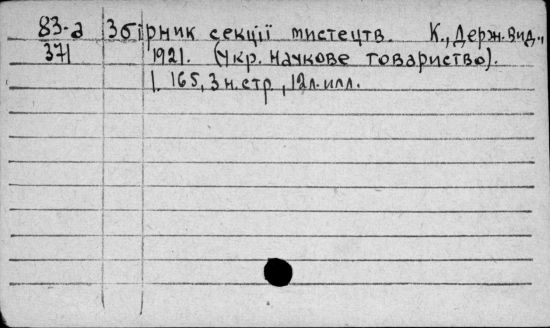 83-а Збірник секції мистецтв. К., Держ. вид.,
371 1921. (Укр. наукове товариство).
1. 165, 3 н. стр., 12 л. илл.